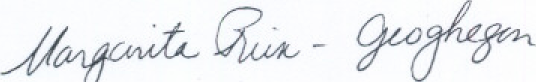 Margarita Ruix - Geoghegan